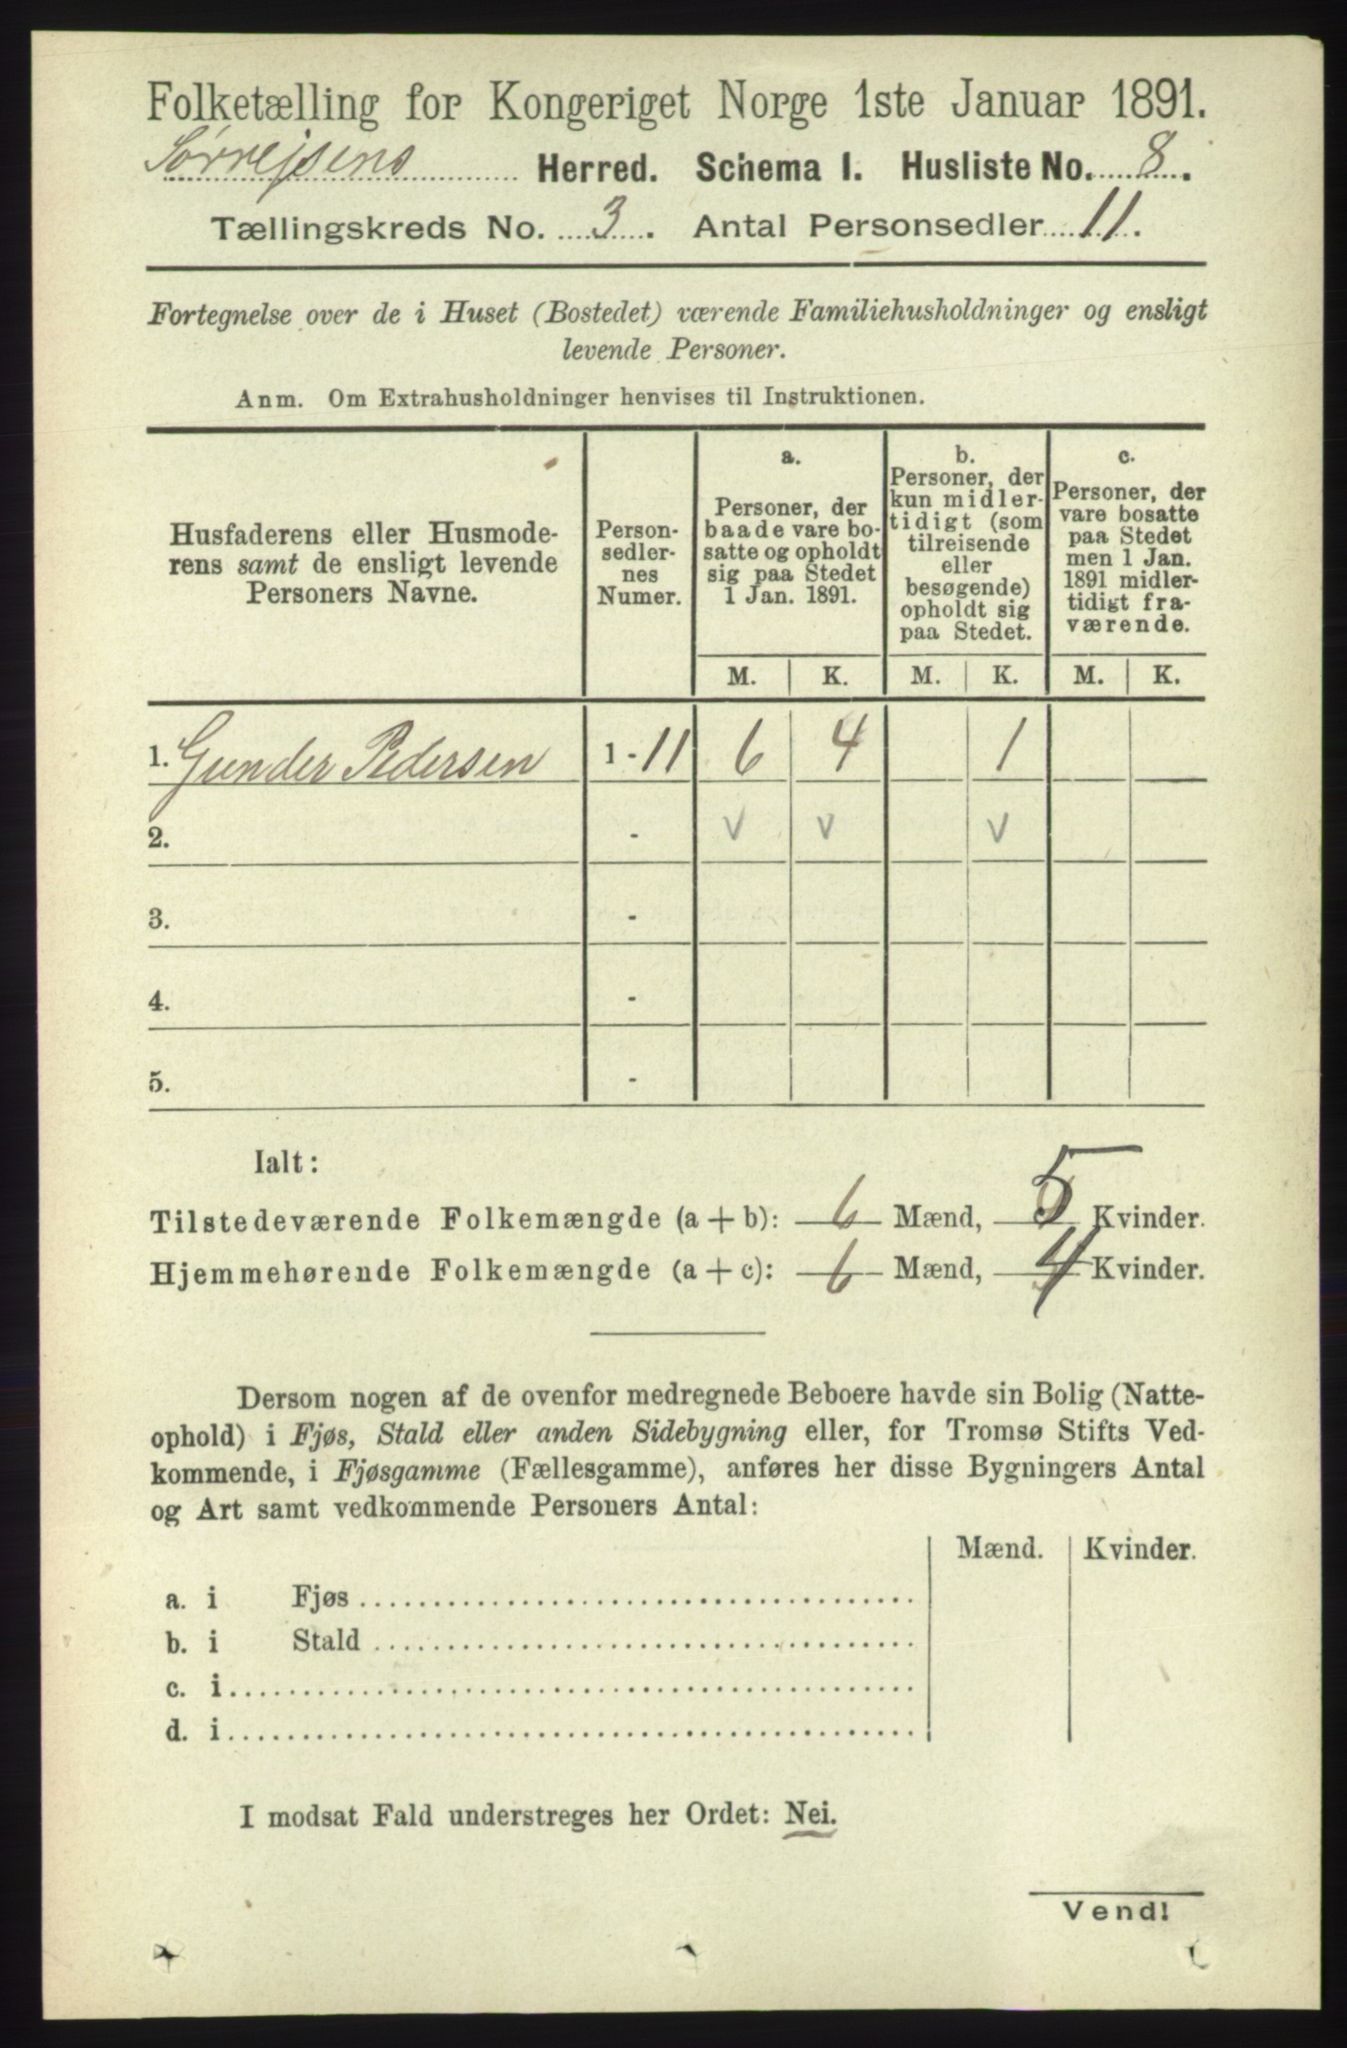 Folketælling for Kongeriget Norge 1ste Januar 1891.
Sørrejsens Herred. Schema I. Husliste No. 8.
Tællingskreds No. 3. Antal Personsedler 11.
Fortegnelse over de i Huset (Bostedet) værende Familiehusholdninger og ensligt
levende Personer.
Anm. Om Extrahusholdninger henvises til Instruktionen.
Husfaderens eller Husmode-
rens samt de ensligt levende
Personers Navne.
Person-
sedler-
nes
Numer.
a.
Personer, der
baade vare bo-
satte og opholdt
sig paa Stedet
1 Jan. 1891.
b.
Personer, der
kun midler-
tidigt (som
tilreisende
eller
besøgende)
opholdt sig
paa Stedet.
c.
Personer, der
vare bosatte
paa Stedet
men 1 Jan.
1891 midler-
tidigt fra-
værende.
M. K. M. K. M. K.
1. Gunder Pedersen 1 - 11 6 4 1
2. - v v v
3. -
4. -
5. -
Ialt:
Tilstedeværende Folkemængde (a + b): 6 Mænd, 5 Kvinder.
Hjemmehørende Folkemængde (a + c): 6 Mænd, 4 Kvinder.
Dersom nogen af de ovenfor medregnede Beboere havde sin Bolig (Natte-
ophold) i Fjøs, Stald eller anden Sidebygning eller, for Tromsø Stifts Ved-
kommende, i Fjøsgamme (Fællesgamme), anføres her disse Bygningers Antal
og Art samt vedkommende Personers Antal:
Mænd. Kvinder.
a. i Fjøs
b. i Stald
c. i
d. i
I modsat Fald understreges her Ordet: Nei.
Vend!